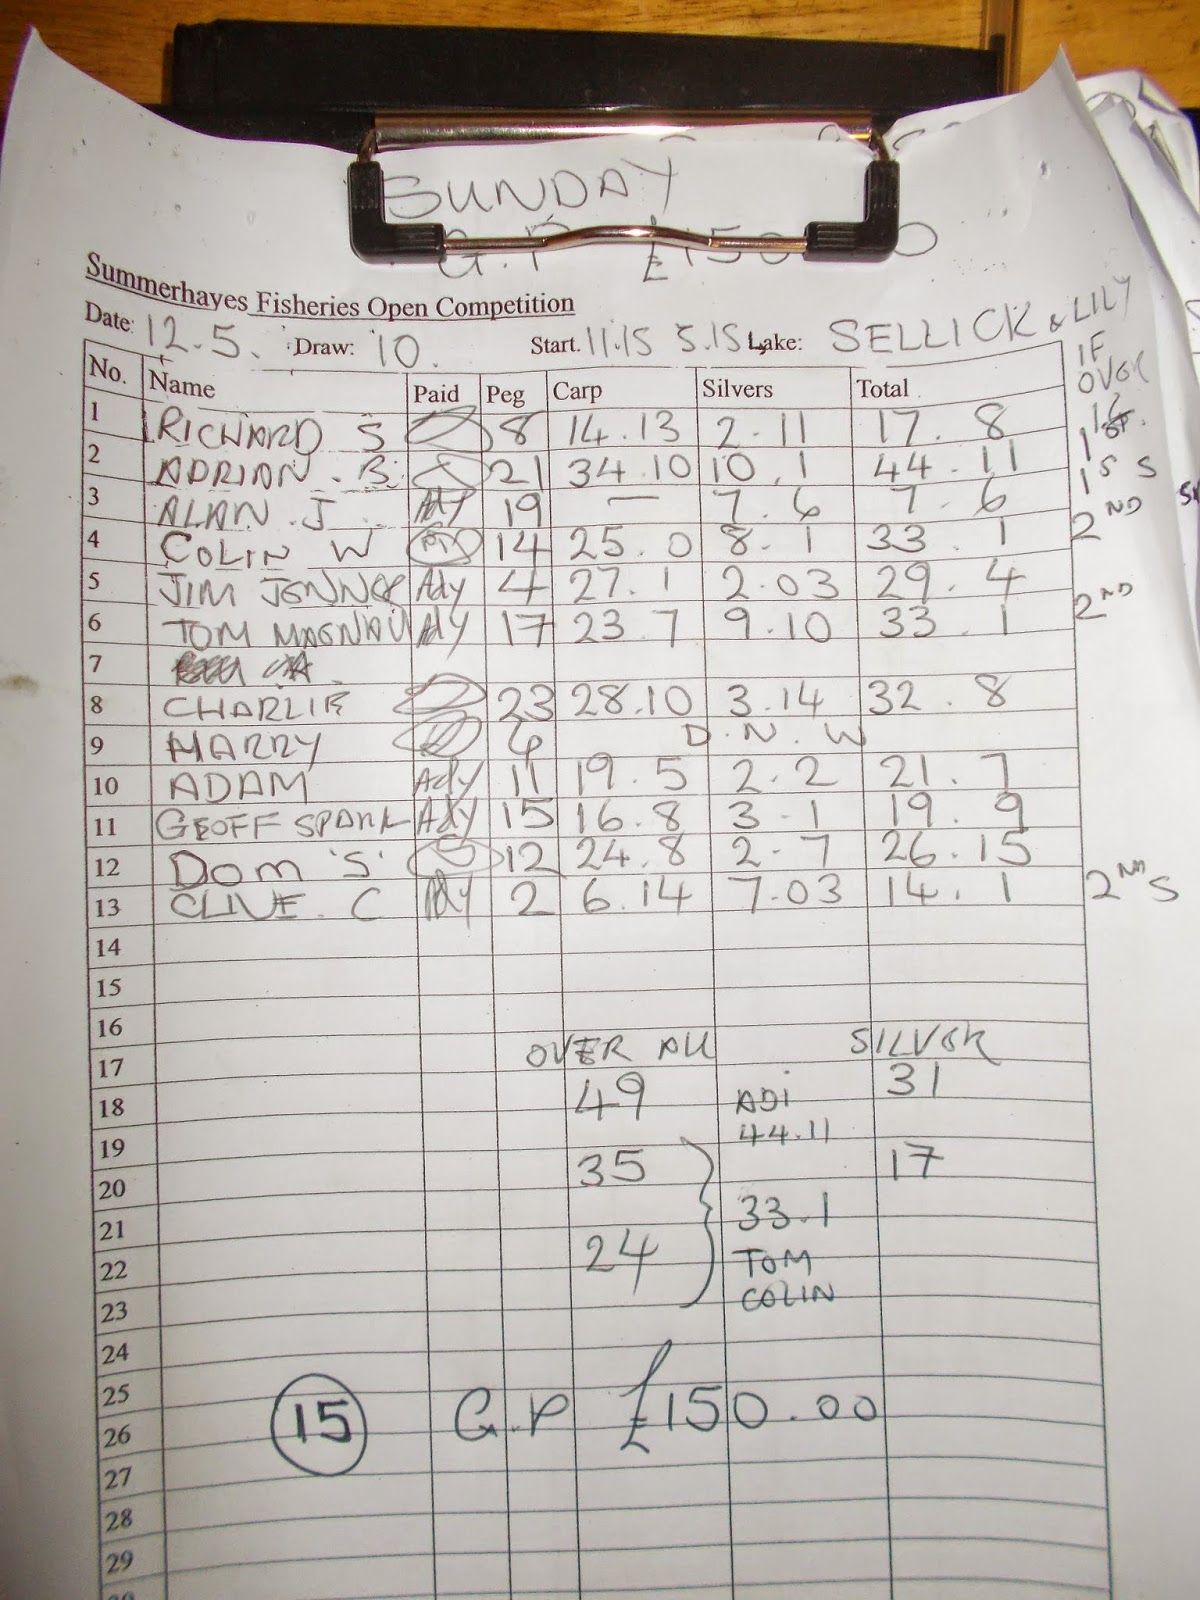 SUNDAY
G.P £150
Summerhayes Fisheries Open Competition
Date: 12.5. Draw: 10. Start. 11.15 5.15 Lake: SELLICK & LILY
IF
OVER
No. Name Paid Peg Carp Silvers Total
1 RICHARD S 8 14.13 2.11 17.8
2 ADRIAN.B 21 34.10 10.1 44.11 1ST S
3 ALAN.J Ady 19 — 7.6 7.6
4 COLIN W 14 25.0 8.1 33.1 2ND
5 JIM JENNER Ady 4 27.1 2.03 29.4
6 TOM MAGNAU Ady 17 23.7 9.10 33.1 2ND
7
8 CHARLIE 23 28.10 3.14 32.8
9 HARRY 6 D.N.W
10 ADAM Ady 11 19.5 2.2 21.7
11 GEOFF SPARK Ady 15 16.8 3.1 19.9
12 DOM 'S' 12 24.8 2.7 26.15
13 CLIVE.C Ady 2 6.14 7.03 14.1 2ND S
14
15
16
17 OVER ALL SILVER
18 49 ADI 31
19 44.11
20 35 17
21 33.1
22 24 TOM
23 COLIN
24
25
26 15 G.P £150.00
27
28
29